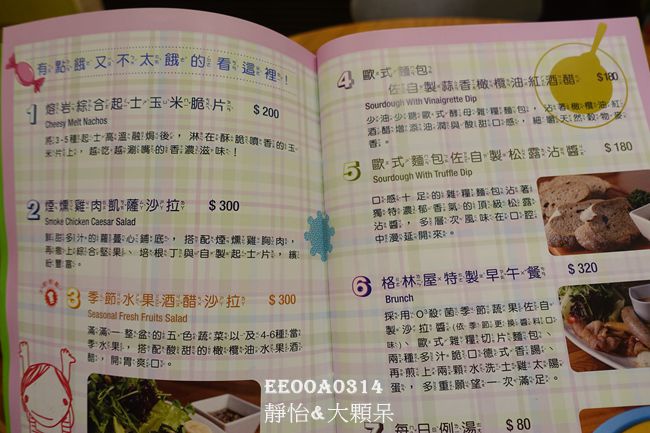 有點餓又不太餓的看這裡!
1 熔岩綜合起士玉米脆片 $200
Cheesy Melt Nachos
將3-5種起士高溫融焗後，淋在酥脆噴香的玉
米片上，越吃越涮嘴的香濃滋味！
2 煙燻雞肉凱薩沙拉 $300
Smoke Chicken Caesar Salad
鮮甜多汁的蘿蔓心鋪底，搭配煙燻雞胸肉，
再會上綜合堅果、培根丁與自製起士片，繽
紛豐富。
3 季節水果酒醋沙拉 $300
Seasonal Fresh Fruits Salad
滿滿一整盆的五色蔬菜以及4-6種當
季水果，搭配酸甜的橄欖油水果酒
醋，開胃爽口。
4 歐式麵包
佐自製蒜香橄欖油紅酒醋 $180
Sourdough With Vinaigrette Dip
少油少糖歐式酵母雜糧麵包，沾著橄欖油紅
酒醋增添油潤與酸甜口感，細嚼天然穀物麥
香。
5 歐式麵包佐自製松露沾醬 $180
Sourdough With Truffle Dip
口感十足的雜糧麵包沾著
獨特濃郁香氣的頂級松露
沾醬，多層次風味在口腔
中漫延開來。
6 格林屋特製早午餐 $320
Brunch
採用O殺菌季節蔬果佐自
製沙拉醬(依季節更換醬料口
味)、歐式雜糧切片麵包、
兩種多汁脆口德式香腸、
再煎上兩顆水洗土雞太陽
蛋，多重願望一次滿足。
7 每日例湯 $80
EEOOA0314
靜怡&大顆呆